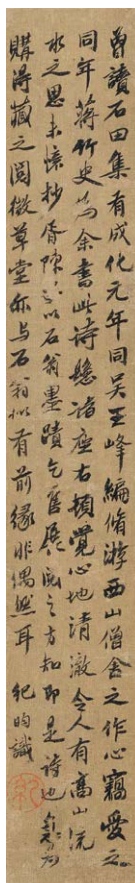 曾讀石田集有成化元年同吴玉峰編脩游西山僧舍之作心竊愛之
同年蔣竹史为余書此詩懸诸座右頓覺心地清澈令人有高山流
水之思未以石翁墨蹟乞售展阅之方知即是詩也亟为
購得藏之閲微草堂亦与石翁似有前缘非偶然耳 紀昀識